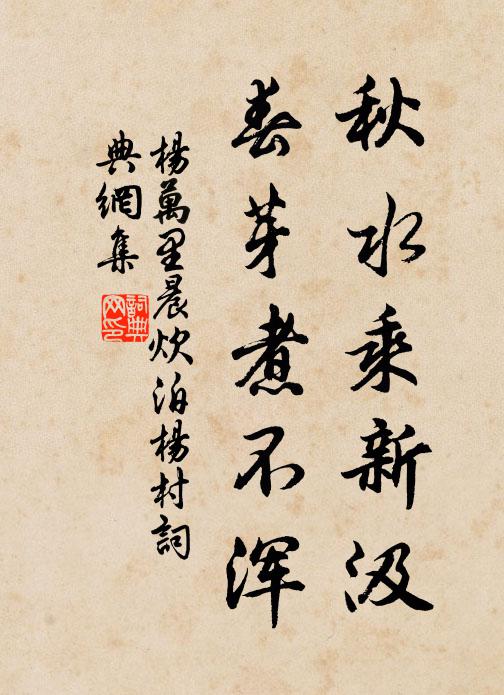 秋水乘新汲
春芽煮不浑
楊萬里晨炊泊楊村詞
典網集
詞典网印